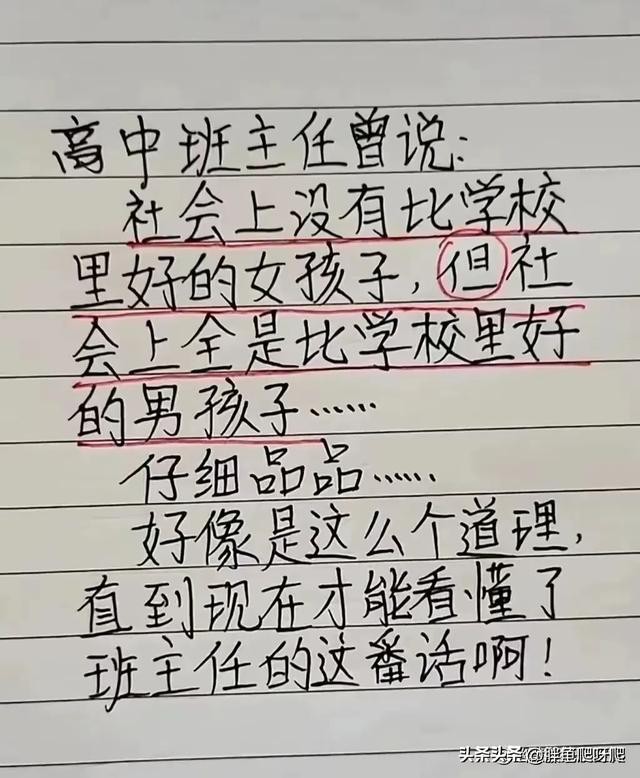 高中班主任曾说:
社会上没有比学校
里好的女孩子,但社
会上全是比学校里好
的男孩子……
仔细品品……
好像是这么个道理,
直到现在才能看懂了
班主任的这番话啊!
头条头条@胖鱼爬呀爬